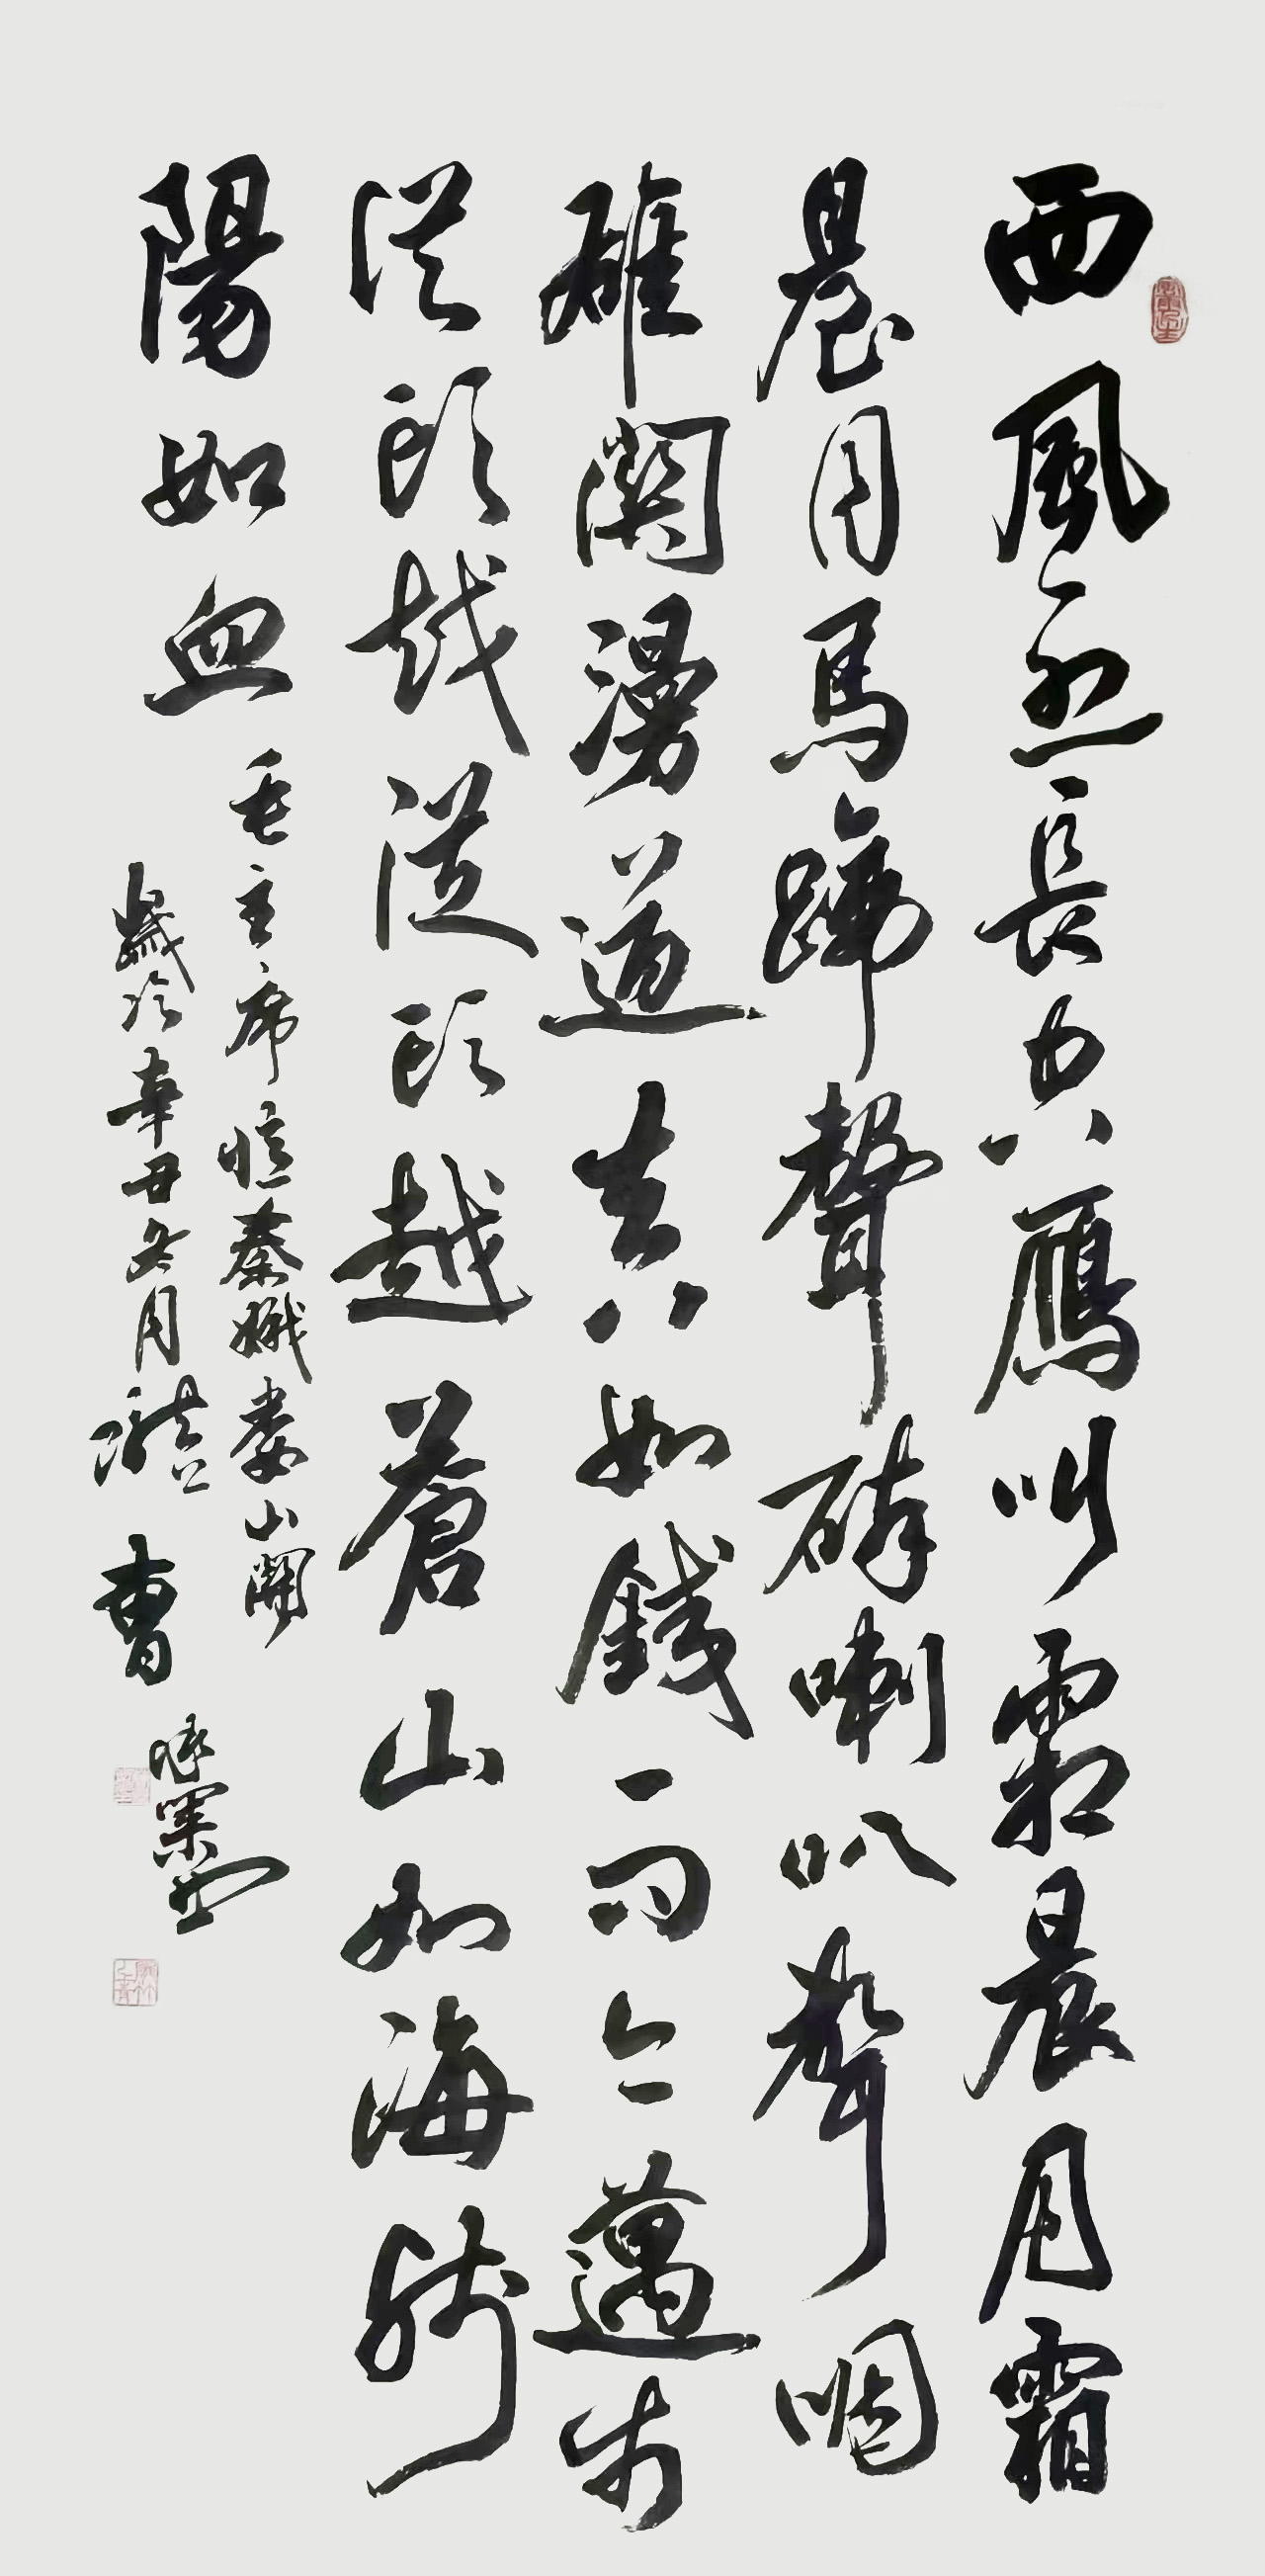 西風烈長空鴈叫霜晨月霜
晨月馬蹄聲碎喇叭聲咽
雄關漫道真如鐵而今邁步
從頭越從頭越蒼山如海殘
陽如血
毛主席憶秦娥婁山關
歲次辛丑冬月
曹